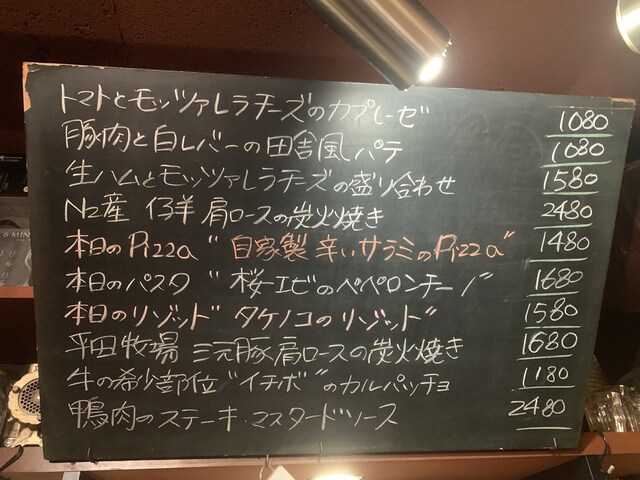 トマトとモッツァレラチーズのカプレーゼ 1080
豚肉と白レバーの田舎風パテ 1080
生ハムとモッツァレラチーズの盛り合わせ 1580
NZ産 仔羊肩ロースの炭火焼き 2480
本日のPizza "自家製 辛いサラミのPizza" 1480
本日のパスタ "桜エビのペペロンチーノ" 1680
本日のリゾット "タケノコのリゾット" 1580
平田牧場 三元豚肩ロースの炭火焼き 1680
牛の希少部位"イチボ"のカルパッチョ 1180
鴨肉のステーキ・マスタードソース 2480